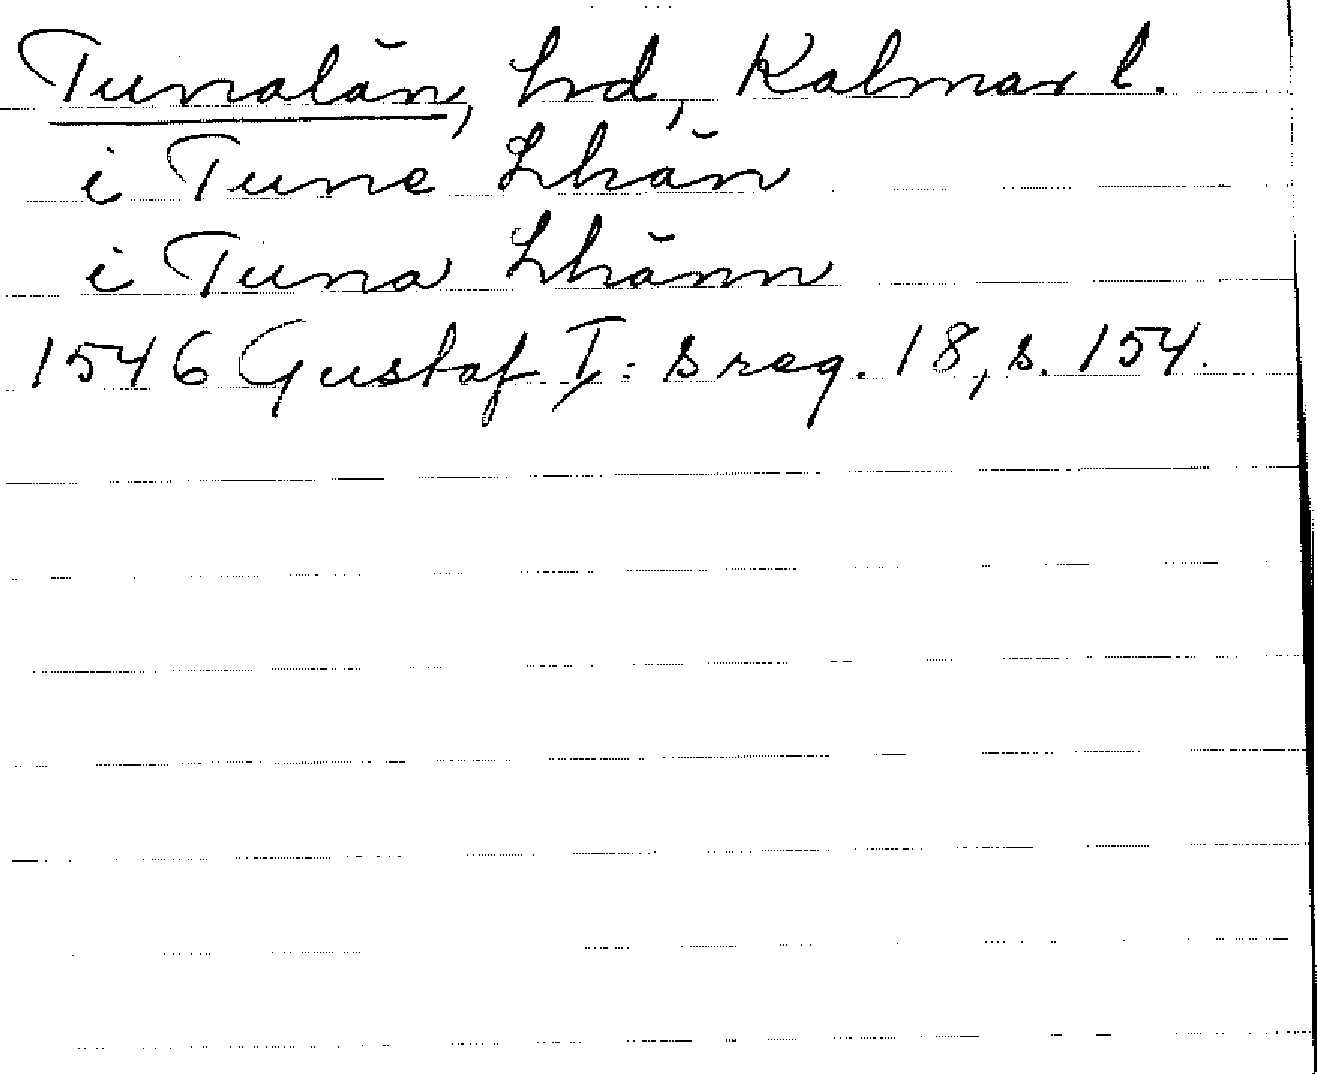 Tunalän, hd, Kalmar l.
i Tune Lhän
i Tuna Lhänn
1546 Gustaf I: s reg. 18, s. 154.